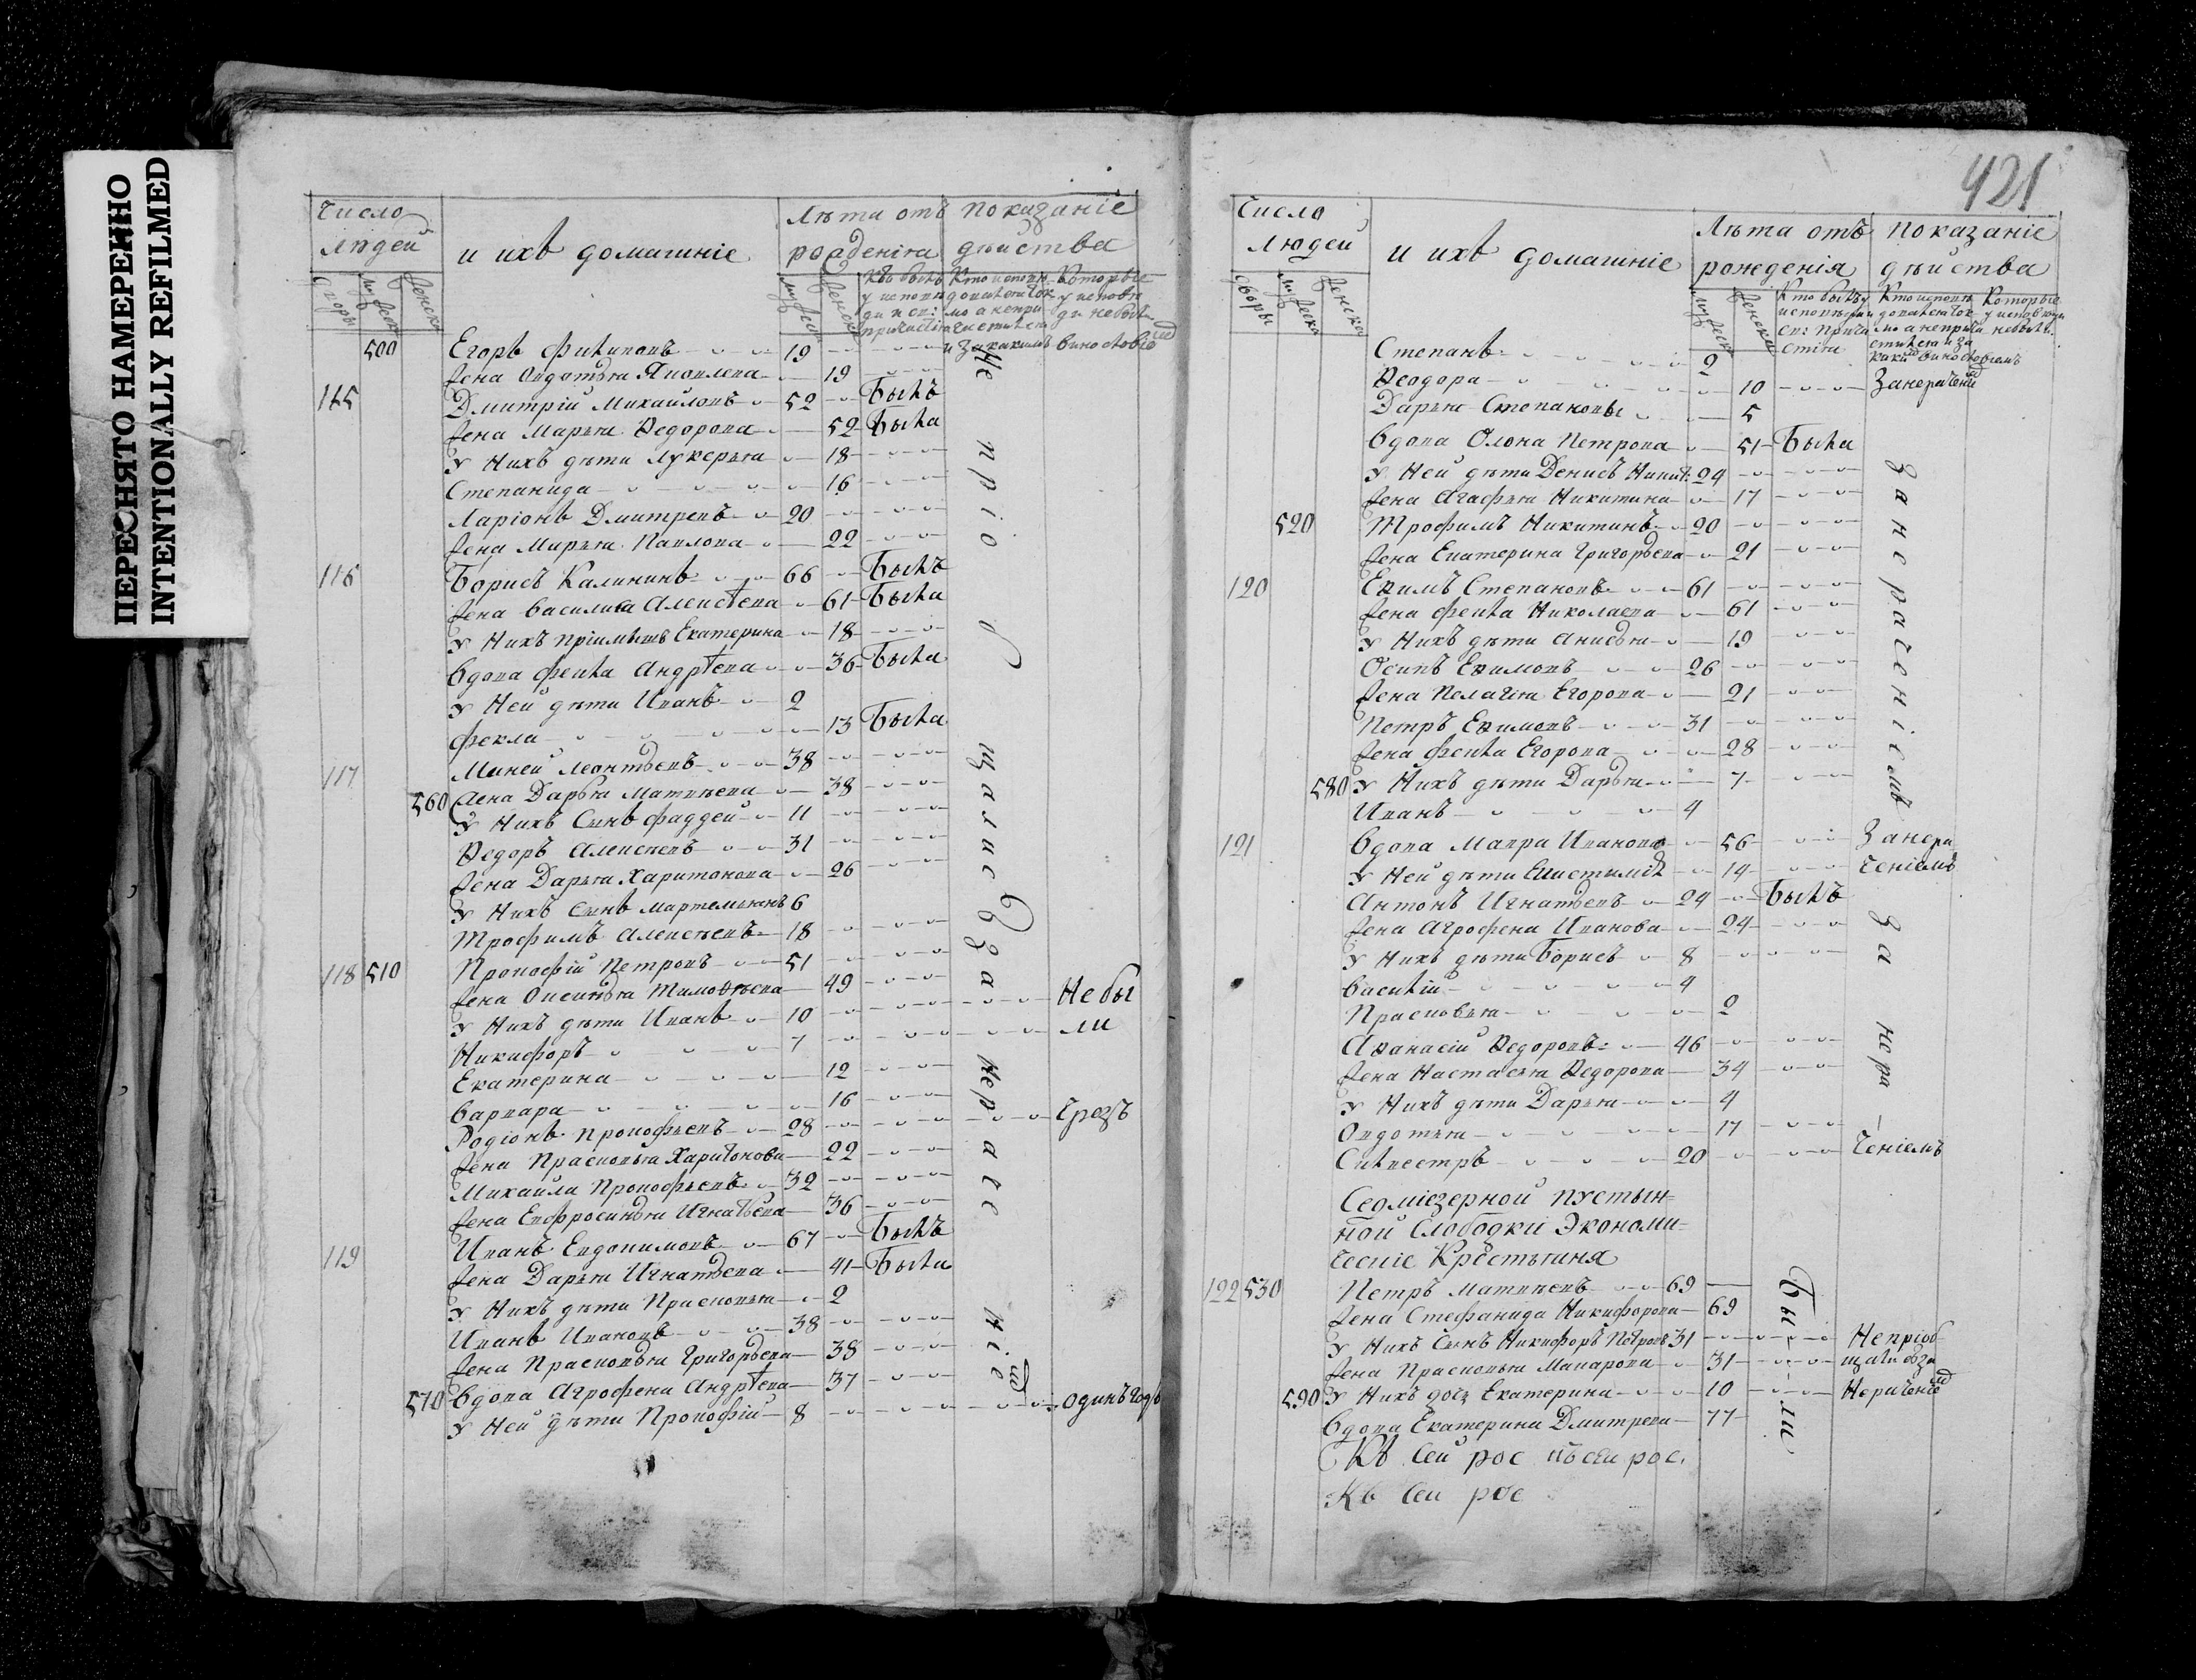 ПЕРЕСНЯТО НАМЕРЕННО
INTENTIONALLY REFILMED
Число людей
и ихъ домашніе
Лѣта отъ рожденія
показаніе дѣйства
500 Егоръ Филиповъ 19
Жена Овдотья Яковлева 19
115 Дмитрій Михайловъ 52 Былъ
Жена Марья Ѳедорова 52 Была
У Нихъ дѣти Лукерья 18
Степанида 16
Ларіонъ Дмитревъ 20
Жена Марья Павлова 22
116 Борисъ Калининъ 66 Былъ
Жена Василиса Алексѣева 61 Была
У Нихъ пріимышъ Екатерина 18
Вдова Фекла Андрѣева 36 Была
У Ней дѣти Иванъ 2
Фекла 13 Была
117 Матвей Леонтьевъ 38
560 Жена Дарья Матвѣева 38
У Нихъ Сынъ Фаддей 11
Ѳедоръ Алексѣевъ 31
Жена Дарья Харитонова 26
У Нихъ Сынъ Мартемьянъ 6
Трофимъ Алексѣевъ 18
118 510 Прокофій Петровъ 51
Жена Ксиндья Тимоѳѣева 49
У Нихъ дѣти Иванъ 10 Небы
Никифоръ 7 ли
Екатерина 12
Варвара 16
Родіонъ Прокофьевъ 28 Чрезъ
Жена Прасковья Харитонова 22
Михаила Прокофьевъ 32
Жена Ефросинья Игнатьева 36
119 Иванъ Евдокимовъ 67 Былъ
Жена Дарья Игнатьева 41 Была
У Нихъ дѣти Прасковья 2
Иванъ Ивановъ 38
Жена Прасковья Григорьева 38
570 Вдова Агрофена Андрѣева 37
У Ней дѣти Прокофій 8 одинъ годъ
Не пріобщалис за нераченіемъ
421
Число людей
и ихъ домашніе
Лѣта отъ рожденія
показаніе дѣйства
Степанъ 2
Ѳеодора 10 Занераченіемъ
Дарья Степановы 5
Вдова Олона Петрова 51 Была
У Ней дѣти Денисъ Никит: 24
Жена Агафья Никитина 17
520 Трофимъ Никитинъ 20
Жена Екатерина Григорьева 21
120 Еѳимъ Степановъ 61
Жена Фекла Николаева 61
У Нихъ дѣти Анисья 19
Осипъ Еѳимовъ 26
Жена Пелагія Егорова 21
Петръ Еѳимовъ 31
Жена Фекла Егорова 28
580 У Нихъ дѣти Дарья 7
Иванъ 4
занераченіемъ
121 Вдова Мавра Иванова 56 Занера
У Ней дѣти 14 ченіемъ
Антонъ Игнатьевъ 24 Былъ
Жена Агрофена Иванова 24
У Нихъ дѣти Борисъ 8
Василій 4
Прасковья 2
Аѳанасій Ѳедоровъ 46
Жена Настасья Ѳедорова 34
У Нихъ дѣти Дарья 4
Овдотья 17
Силвестръ 20 ченіемъ
за нера-
Седміезерной пустын-
ной Слободки Экономи-
ческіе Крестьяня
122 530 Петръ Матвѣевъ 69
Жена Стефанида Никифорова 69
У Нихъ Сынъ Никифоръ Петровъ 31 Непріоб
Жена Прасковья Макарова 31 щались за
590 У Нихъ дочь Екатерина 10 Нераченіемъ
Вдова Екатерина Дмитрева 77
Были
Къ Сей рос
Къ Сей рос